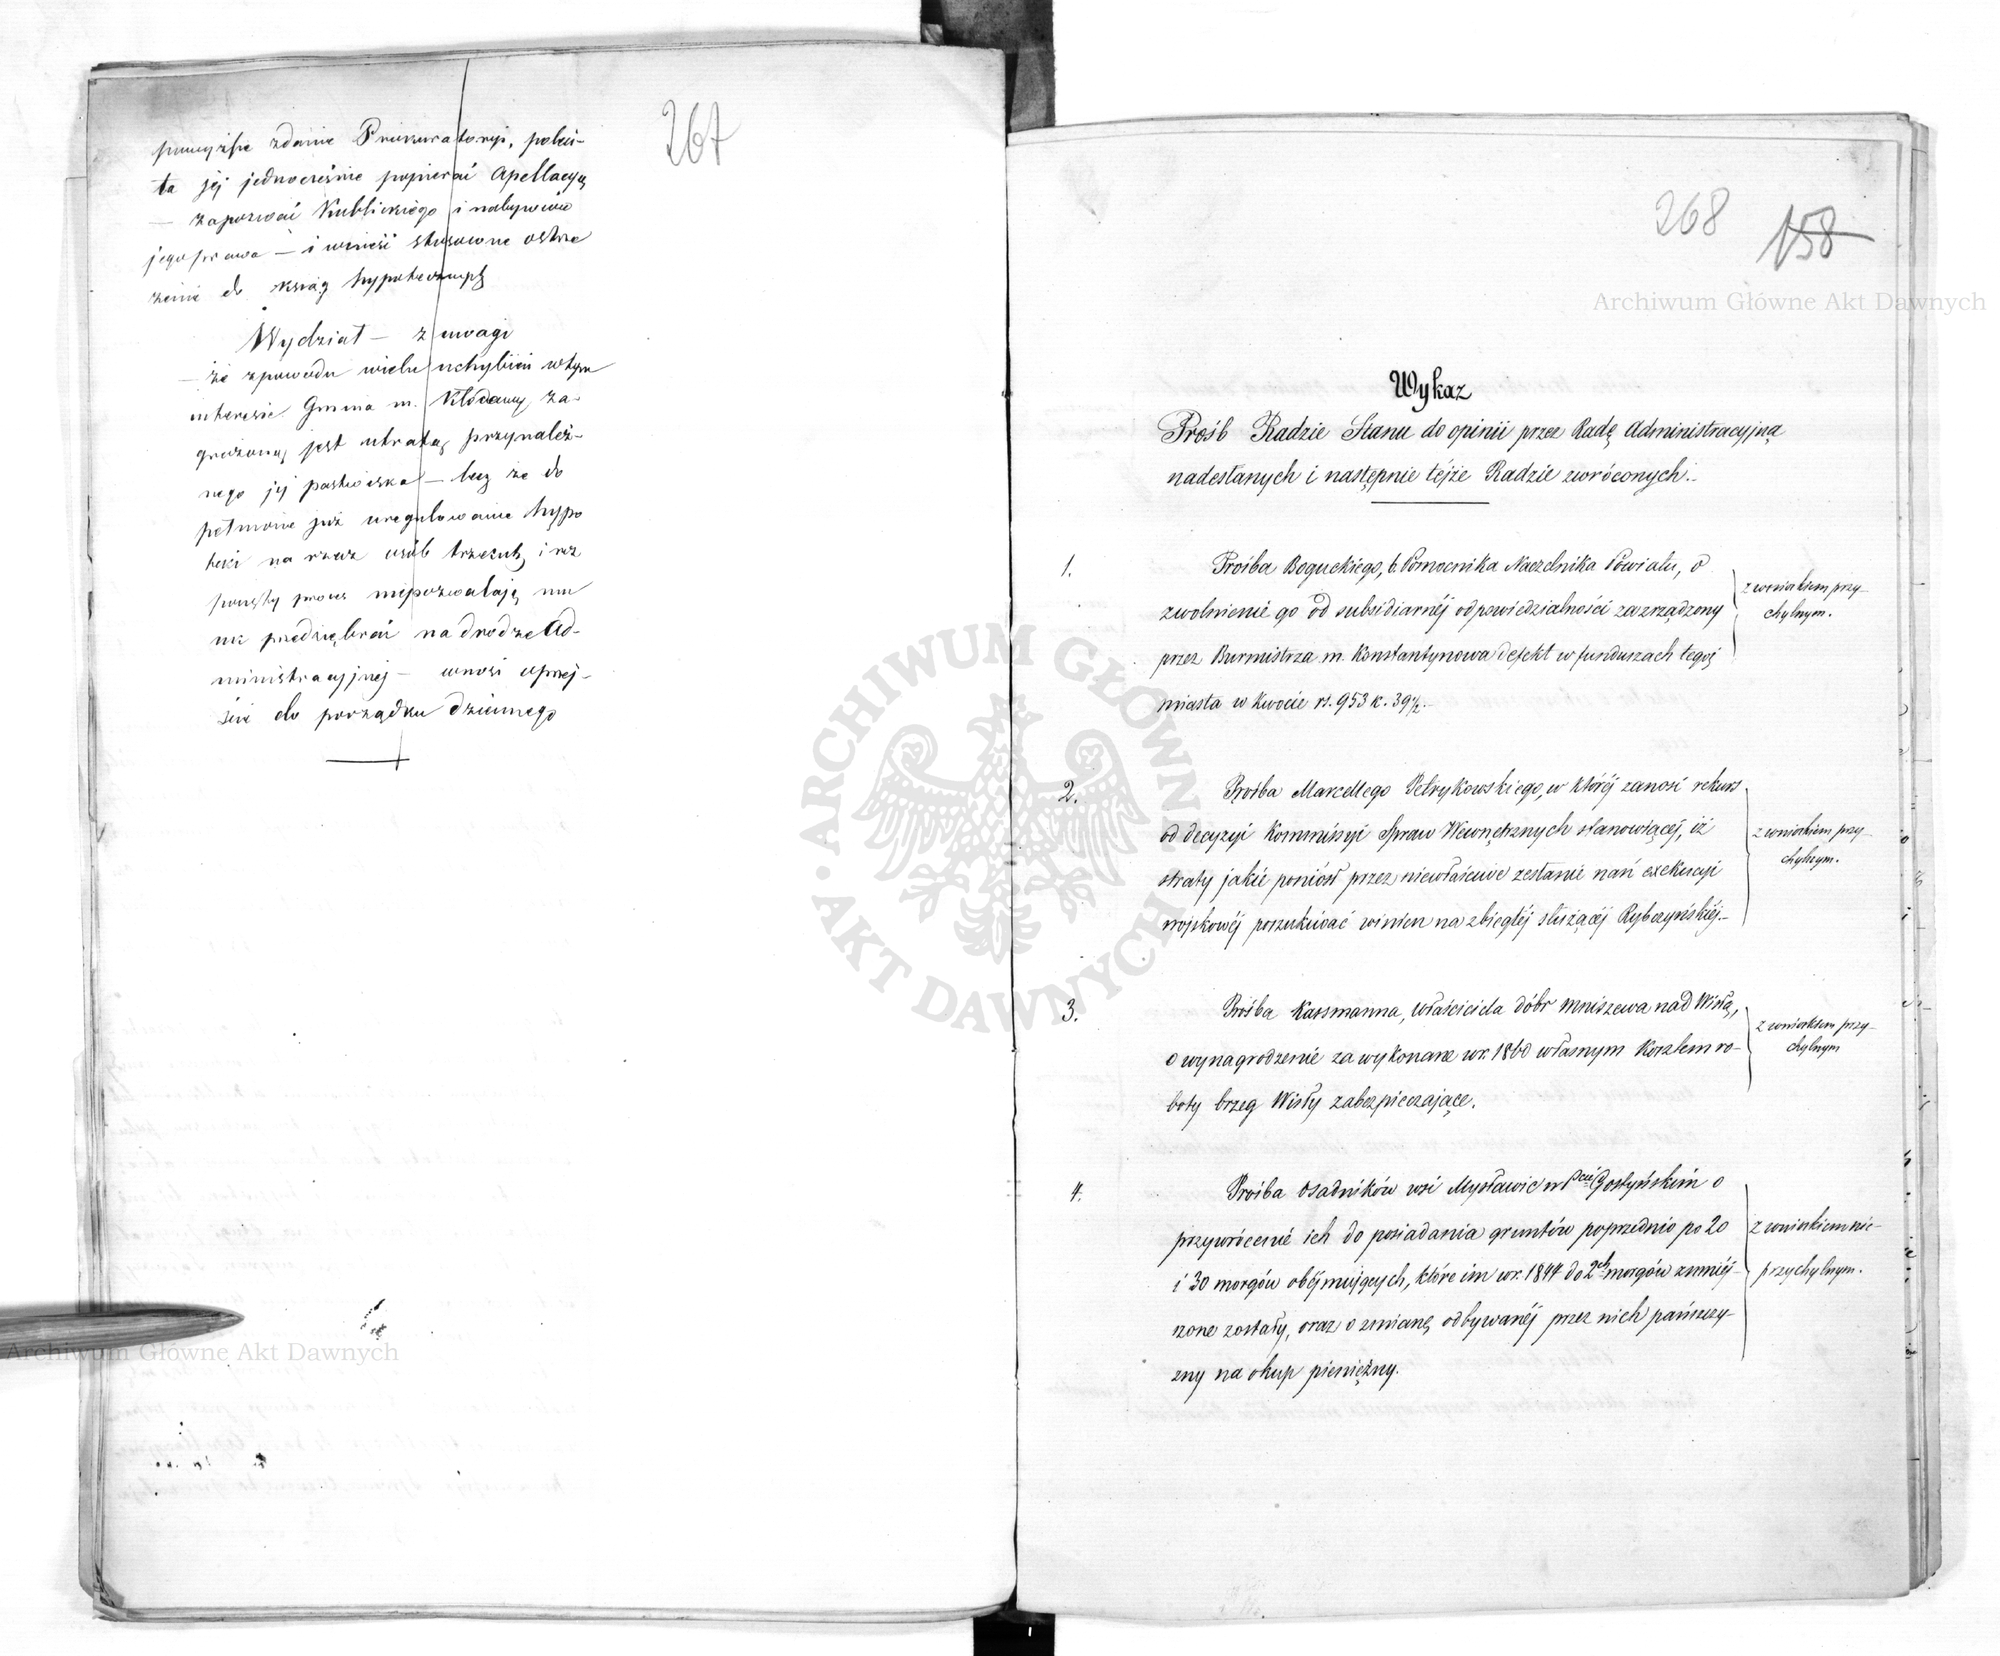 267
powyższe zdanie Prokuratoryi, poleci-
ła jéj jednocześnie popierać Apellacyą
— zapozwać Kublickiego i nabywców
jego prawa — i wnieść stosowne ostrze
żenie do ksiąg hypotecznych
Wydział — z uwagi
— że z powodu wielu uchybień w tym
interesie Gmina m. Kłodawy, za-
grożoną jest utratą przynależ-
nego jéj pastwiska — lecz że do
pełnione już uregulowanie hypo
teki na rzecz osób trzecich, i roz
poczęty proces niepozwalają nic
przedsiębrać na drodze Ad-
ministracyjnej — wnosi o przej-
ście do porządku dziennego
268 158
Archiwum Główne Akt Dawnych
Wykaz
Próśb Radzie Stanu do opinii przez Radę Administracyjną
nadesłanych i następnie téjże Radzie zwróconych.
1. Prośba Boguckiego, b. Pomocnika Naczelnika Powiatu, o
zwolnienie go od subsidiarnéj odpowiedzialności za zrządzony
przez Burmistrza m. Konstantynowa defekt w funduszach tegoż
miasta w kwocie rs. 953 k. 39½.
z wnioskiem przy-
chylnym.
2. Prośba Marcellego Petrykowskiego, w któréj zanosi rekurs
od decyzyi Kommissyi Spraw Wewnętrznych stanowiącéj, iż
straty jakie poniósł przez niewłaściwe zesłanie nań exekucyi
wojskowéj poszukiwać winien na zbiegłéj służącéj Rybczyńskiéj.
z wnioskiem przy-
chylnym.
3. Prośba Karsmanna, właściciela dóbr Mniszewa nad Wisłą,
o wynagrodzenie za wykonane w r. 1860 własnym kosztem ro-
boty brzeg Wisły zabezpieczające.
z wnioskiem przy-
chylnym
4. Prośba osadników wsi Mysławic w Pcie Gostyńskim o
przywrócenie ich do posiadania gruntów poprzednio po 20
i 30 morgów obéjmujących, które im w r. 1844 do 2ch morgów zmniéj-
szone zostały, oraz o zmianę odbywanéj przez nich pańszczy-
zny na okup pieniężny.
z wnioskiem nie-
przychylnym.
ARCHIWUM GŁÓWNE AKT DAWNYCH
Archiwum Główne Akt Dawnych